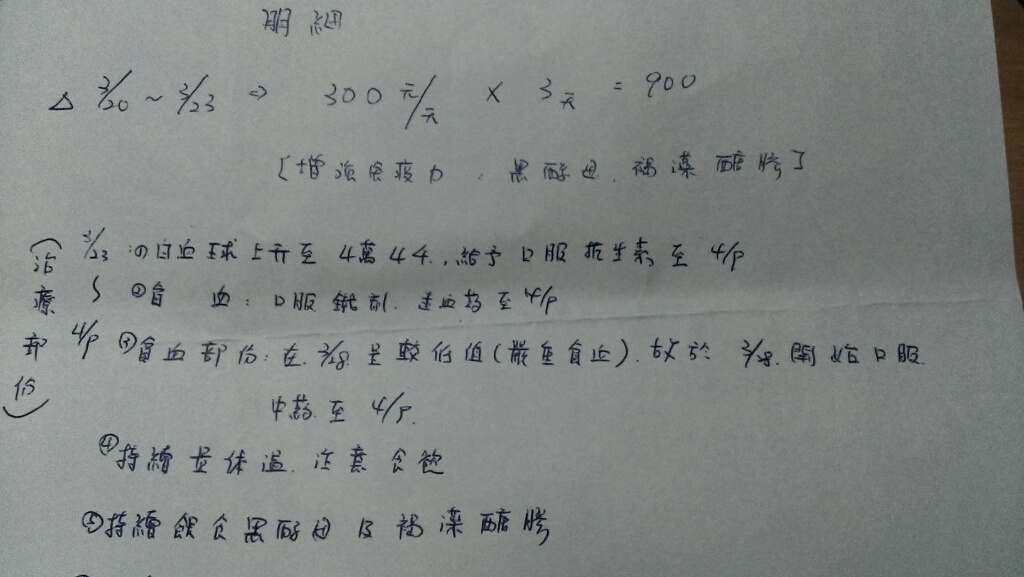 明細
△ 3/20 ~ 3/23 ⇒ 300元/天 × 3天 = 900
[增強免疫力：黑酵母、褐藻醣膠]
(治療部份)
3/23 ~ 4/9
①白血球上升至4萬44.，給予口服抗生素至4/9
②貧 血：口服鐵劑.造血药至4/9
③貧血部份：在3/28.是較低值(嚴重貧血).故於3/28.開始口服
中药.至4/9.
④持續量体温.注意食飲
⑤持續飲食黑酵母及褐藻醣膠